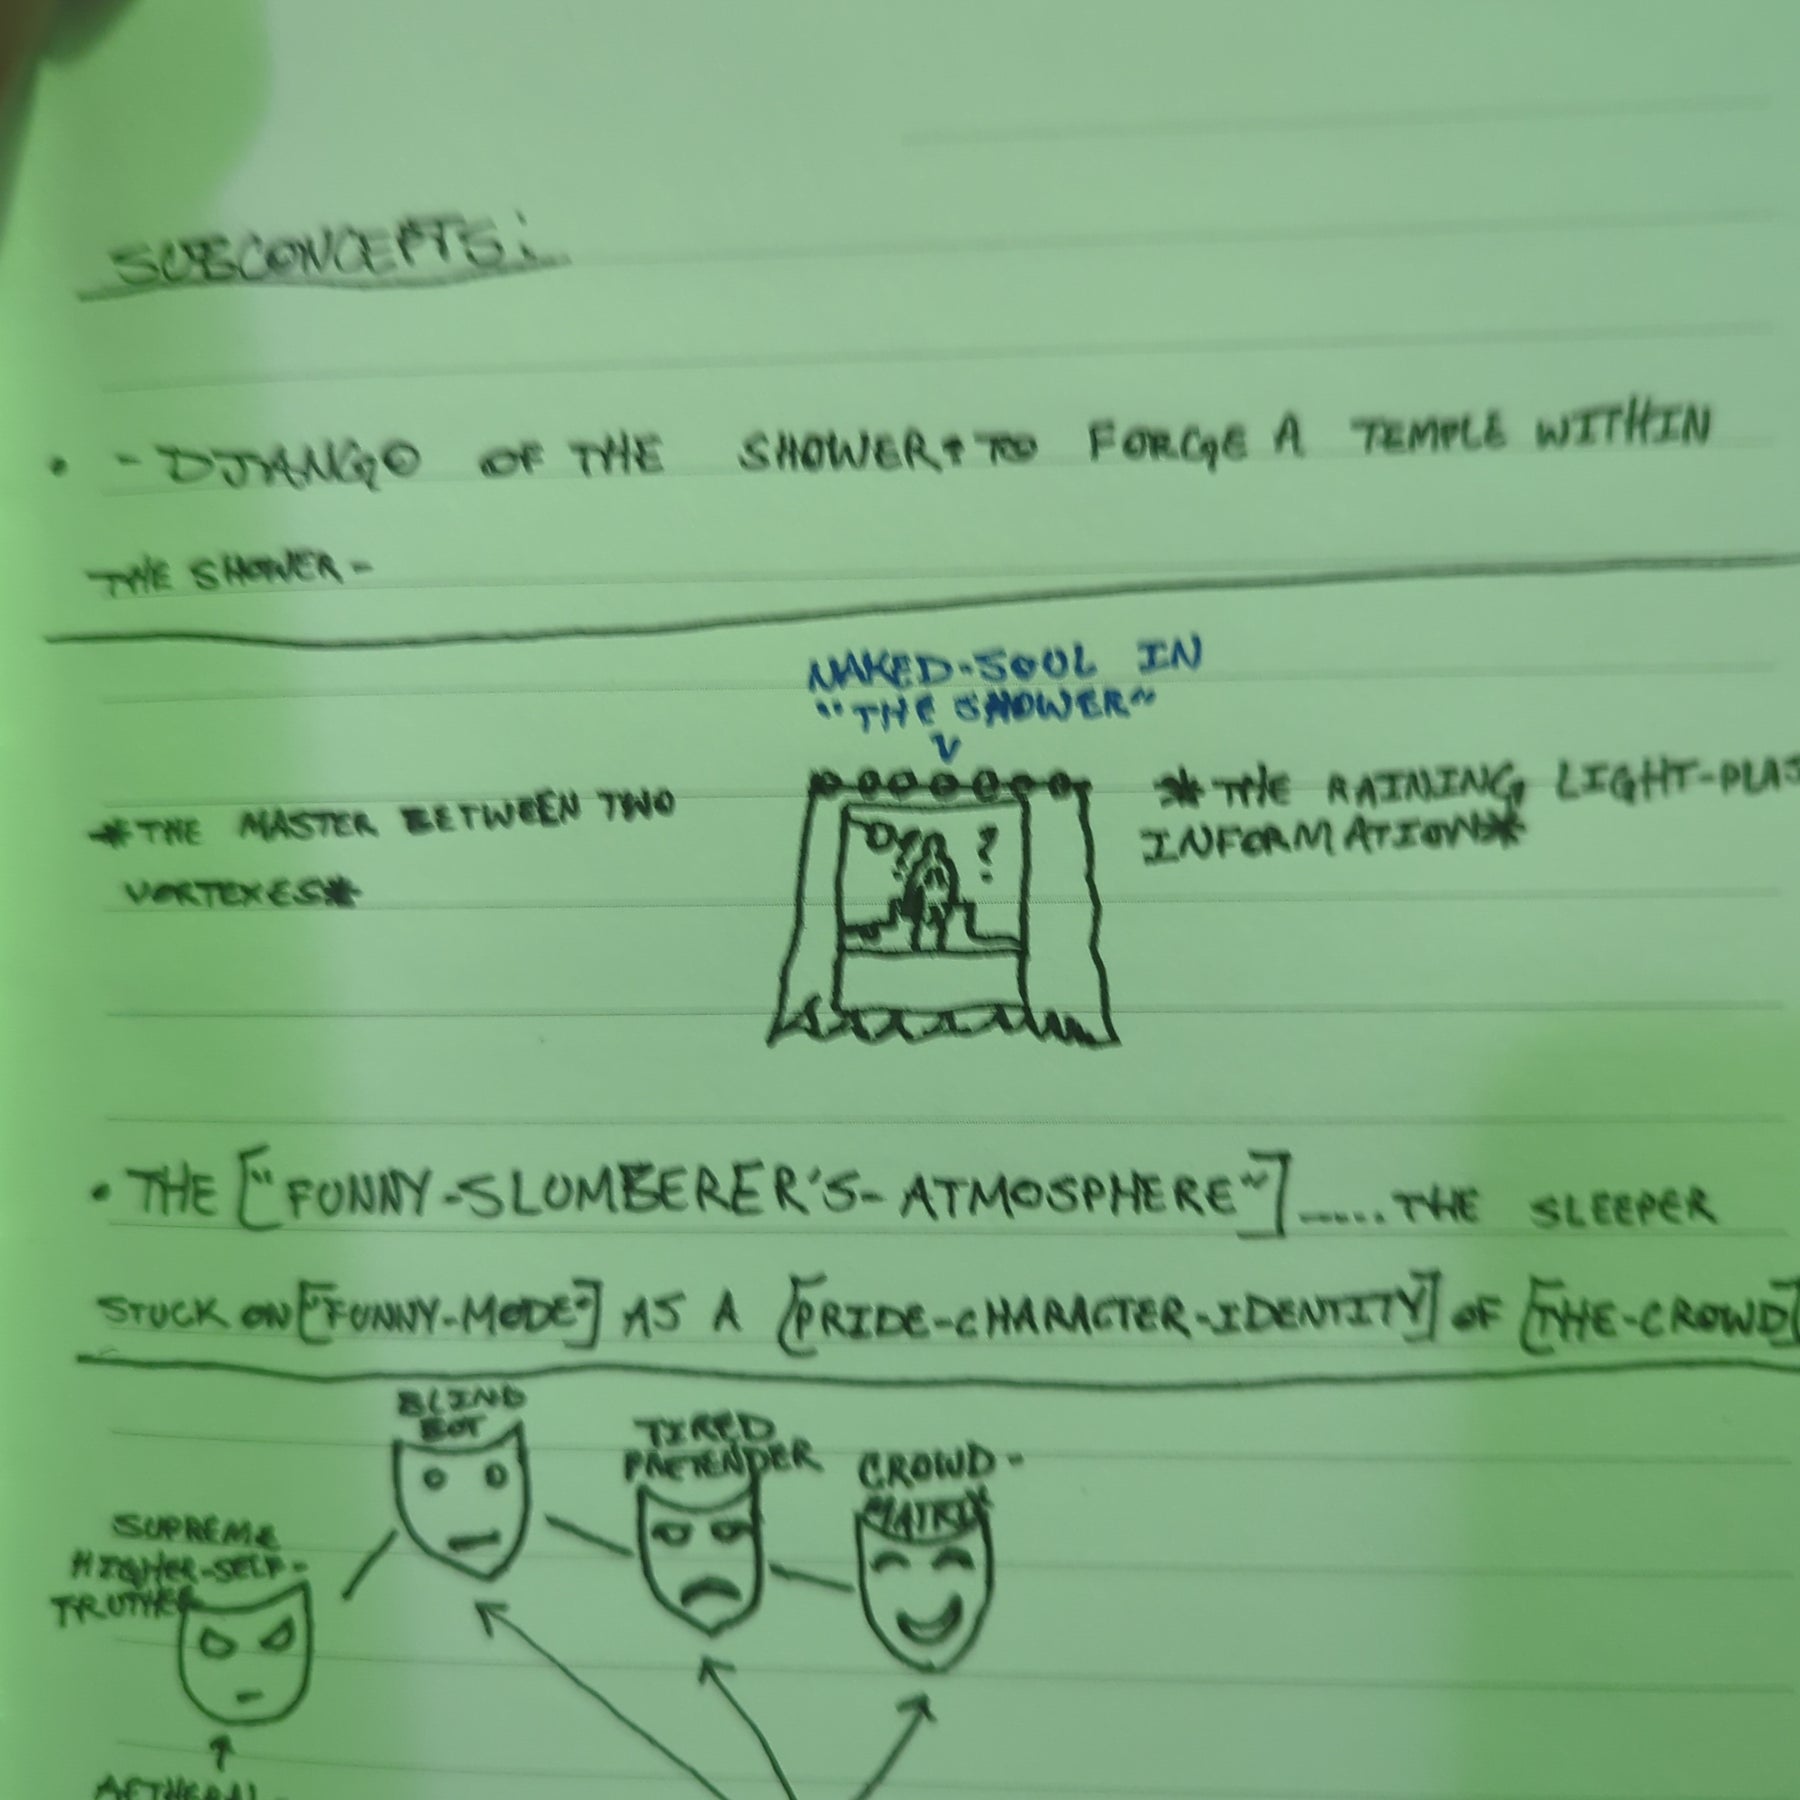 SUBCONCEPTS:
• - DJANGO OF THE SHOWER: TO FORGE A TEMPLE WITHIN
THE SHOWER -
NAKED-SOUL IN
"THE SHOWER"
*THE MASTER BETWEEN TWO
VORTEXES*
*THE RAINING LIGHT-PLAS
INFORMATION*
? ?
• THE ["FUNNY-SLUMBERER'S-ATMOSPHERE"]......THE SLEEPER
STUCK ON ["FUNNY-MODE"] AS A [PRIDE-CHARACTER-IDENTITY] OF [THE-CROWD]
BLIND
BOT
TIRED
PRETENDER
CROWD-
MATRIX
SUPREME
HIGHER-SELF-
TRUTHER
AETHERAL-